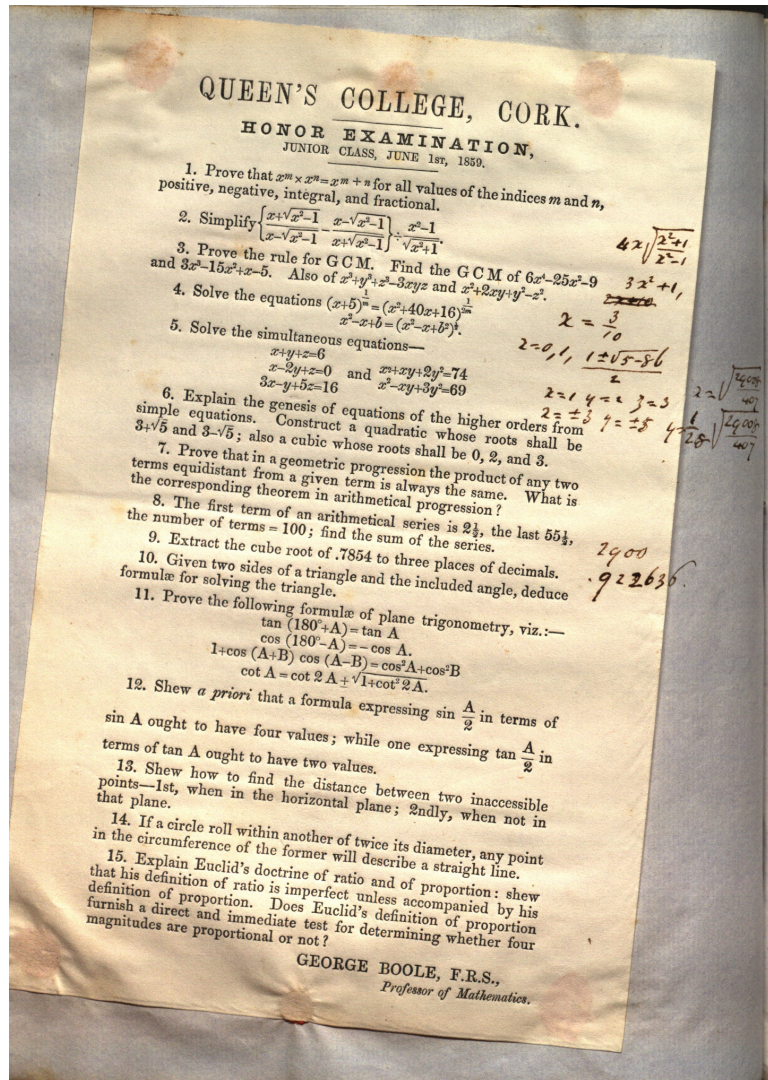 QUEEN'S COLLEGE, CORK.
HONOR EXAMINATION,
JUNIOR CLASS, JUNE 1ST, 1859.
1. Prove that xᵐ × xⁿ = xᵐ⁺ⁿ for all values of the indices m and n,
positive, negative, integral, and fractional.
2. Simplify {(x+√x²-1)/(x-√x²-1) - (x-√x²-1)/(x+√x²-1)} ÷ (x²-1)/√x²+1.
4x √(x²+1)/(x²-1)
3. Prove the rule for G C M. Find the G C M of 6x⁴-25x²-9
and 3x³-15x²+x-5. Also of x³+y³+z³-3xyz and x²+2xy+y²-z².
3x²+1,
4. Solve the equations (x+5)^(1/m) = (x²+40x+16)^(1/2m)
x = 3/10
x²-x+b = (x²-x+b²)^½.
x=0,1, (1±√5-8b)/2
5. Solve the simultaneous equations—
x+y+z=6
x-2y+z=0 and x²+xy+2y²=74
3x-y+5z=16 x²-xy+3y²=69
x=1 y=2 z=3
x=±3 y=±5
6. Explain the genesis of equations of the higher orders from
simple equations. Construct a quadratic whose roots shall be
3+√5 and 3-√5; also a cubic whose roots shall be 0, 2, and 3.
7. Prove that in a geometric progression the product of any two
terms equidistant from a given term is always the same. What is
the corresponding theorem in arithmetical progression?
8. The first term of an arithmetical series is 2½, the last 55½,
the number of terms = 100; find the sum of the series.
2900
9. Extract the cube root of .7854 to three places of decimals.
.922636.
10. Given two sides of a triangle and the included angle, deduce
formulæ for solving the triangle.
11. Prove the following formulæ of plane trigonometry, viz.:—
tan (180°+A) = tan A
cos (180°-A) = - cos A.
1+cos (A+B) cos (A-B) = cos²A+cos²B
cot A = cot 2 A ± √1+cot² 2 A.
12. Shew a priori that a formula expressing sin A/2 in terms of
sin A ought to have four values; while one expressing tan A/2 in
terms of tan A ought to have two values.
13. Shew how to find the distance between two inaccessible
points—1st, when in the horizontal plane; 2ndly, when not in
that plane.
14. If a circle roll within another of twice its diameter, any point
in the circumference of the former will describe a straight line.
15. Explain Euclid's doctrine of ratio and of proportion: shew
that his definition of ratio is imperfect unless accompanied by his
definition of proportion. Does Euclid's definition of proportion
furnish a direct and immediate test for determining whether four
magnitudes are proportional or not?
GEORGE BOOLE, F.R.S.,
Professor of Mathematics.